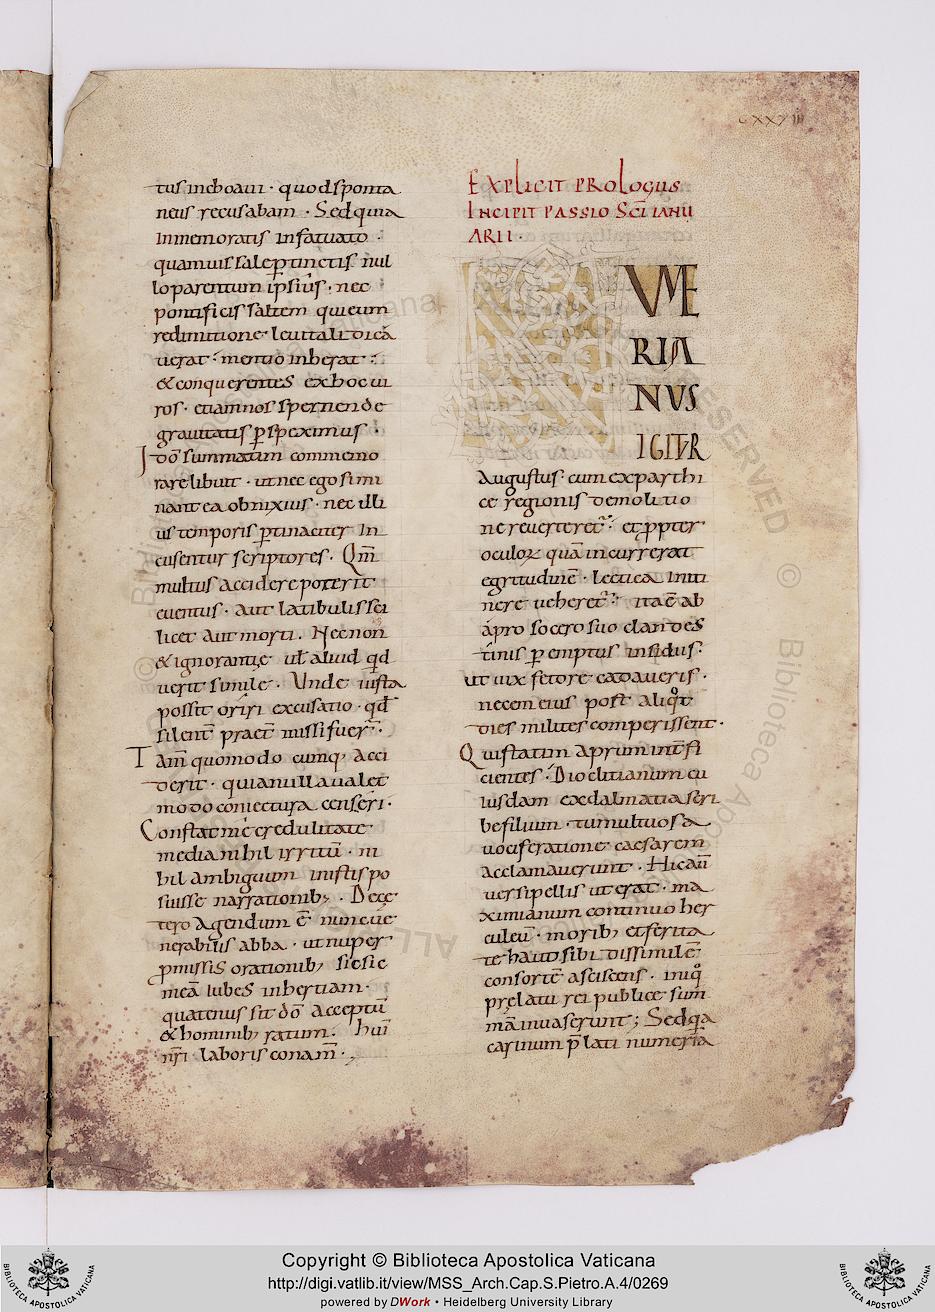 CXXVIII
tus inchoavi · quod sponta
neus recusabam · Sed quia
inmemoratis infatuato ·
quamvis sale ꝑtinctis nul
lo parentum ipsius · nec
pontificis saltem qui eum
redimitione levitali dicā
verat · mentio inherat ·
& conquerentes ex hoc vi
ros · etiam nos spernende
gravitatis ꝑspeximus ·
Idō summatim commemo
rare libuit · ut nec ego simi
nant ea obnixius · nec illi
us temporis ꝑtinaciter in
cusentur scriptores · Qm̄
multus accidere poterit
eventus · aut latibulis sci
licet aut morti · Nec non
& ignorantię vł aliud qđ
uerit simile · Unde iusta
possit oriri excusatio · qđ
silent̄ praet̄misisi fuer̄ ·
Tam̄ quomodo cumq; acci
derit · quia nulla valet
modo coniectura censeri ·
Constat m̄ credulitate
media nihil irritū · ni
hil ambiguum inistis po
suisse narrationib; · Dece
tero agendum ē nunc ve
nerabilis abba · ut nuper
p̄missis orationib; sic sic
meā iubes inhertiam ·
quatenus sit dō acceptū
& hominib; ratum · hui
nr̄i laboris conam̄ ·
EXPLICIT PROLOGUS
INCIPIT PASSIO SC̄I IANU
ARII ·
VME
RIA
NUS
IGITUR
Augustus · cum ex parthi
ce regionis demolitio
ne reverteret̄ · et ꝓpter
oculoꝝ quā incurrerat
egritudinē · lectica initi
nere veheret̄ · ita ē ab
apro socero suo clandes
tinis ꝑemptus insidiis ·
Ut vix fetore cadaveris ·
necem eius post aliqt
dies milites comperissent ·
Qui statim aprum int̄fi
cientes · Dioclitianum cu
iusdam ex dalmatia scri
be filium · tumultuosa
vociferatione caesarem
acclamaverunt · Hic aū
versipellis ut erat · ma
ximianum continuo her
culeū · morib; et ferita
te haud sibi dissimilē
consortē asciscens · iniq̊
prelatu rei publice sum
mā invaserunt; Sed q̄a
carinum p̄lati numeria
Copyright © Biblioteca Apostolica Vaticana
http://digi.vatlib.it/view/MSS_Arch.Cap.S.Pietro.A.4/0269
powered by DWork • Heidelberg University Library